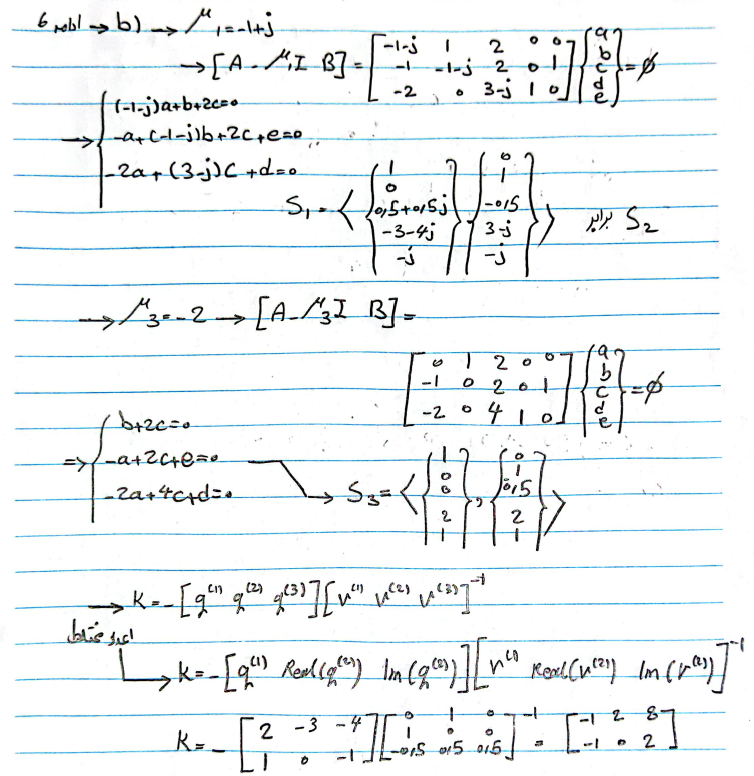 ادامه 6 → b) → μ₁=-1+j
→ [A-μ₁I B] = [-1-j 1 2 0 0; -1 -1-j 2 0 1; -2 0 3-j 1 0] {a b c d e} = φ
→ { (-1-j)a+b+2c=0
-a+(-1-j)b+2c+e=0
-2a+(3-j)c+d=0
S₁=< {1 0 0,5+0,5j -3-4j -j}, {0 1 -0,5 3-j -j} > برابر S₂
→ μ₃=-2 → [A-μ₃I B]=
[0 1 2 0 0; -1 0 2 0 1; -2 0 4 1 0] {a b c d e} = φ
⇒ { b+2c=0
-a+2c+e=0
-2a+4c+d=0
→ S₃=< {1 0 0 2 1}, {0 1 -0,5 2 1} >
→ K=-[q⁽¹⁾ q⁽²⁾ q⁽³⁾][v⁽¹⁾ v⁽²⁾ v⁽³⁾]⁻¹
اعداد مختلط
→ K=-[q⁽¹⁾ Real(q⁽²⁾) Im(q⁽²⁾)][v⁽¹⁾ Real(v⁽²⁾) Im(v⁽²⁾)]⁻¹
K=-[2 -3 -4; 1 0 -1][0 1 0; 1 0 0; -0,5 0,5 0,5]⁻¹ = [-1 2 8; -1 0 2]